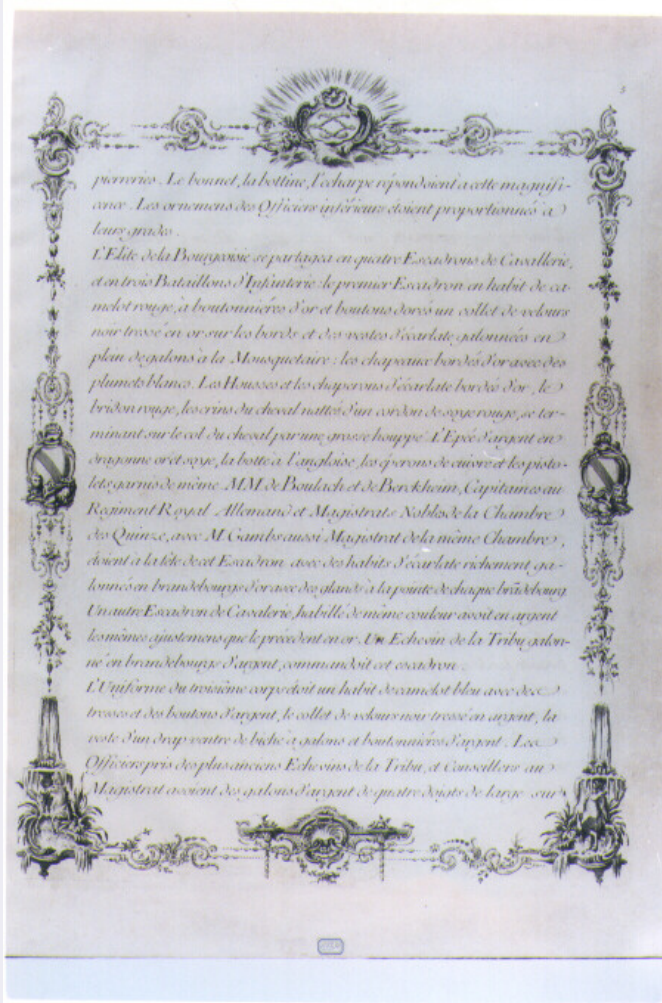 5
pierreries. Le bonnet, la bottine, l'écharpe répondoient a cette magnifi-
cence. Les ornemens des Officiers inférieurs étoient proportionnés a
leurs grades.
L'Elite de la Bourgeoisie se partagea en quatre Escadrons de Cavallerie,
et en trois Bataillons d'Infanterie: le premier Escadron en habit de ca-
melot rouge, à boutonnières d'or et boutons dorés un collet de velours
noir tressé en or sur les bords et des vestes d'écarlate galonnées en
plein de galons à la Mousquetaire: les chapeaux bordés d'or avec des
plumets blancs. Les Housses et les chaperons d'écarlate bordés d'or, le
bridon rouge, les crins du cheval nattés d'un cordon de soye rouge, se ter-
minant sur le col du cheval par une grosse houppe. L'Epée d'argent en
dragonne or et soye, la botte à l'angloise, les éperons de cuivre et les pisto-
lets garnis de même. MM. de Boulach et de Berckheim, Capitaines au
Regiment Royal Allemand et Magistrats Nobles de la Chambre
des Quinze, avec M. Gambs aussi Magistrat de la même Chambre,
étoient à la tête de cet Escadron avec des habits d'écarlate richement ga-
lonnés en brandebourgs d'or avec des glands à la pointe de chaque brãdebourg.
Un autre Escadron de Cavalerie, habillé de même couleur avoit en argent
les mêmes ajustemens que le précédent en or. Un Echevin de la Tribu, galon-
né en brandebourgs d'argent, commandoit cet escadron.
L'Uniforme du troisième corps étoit un habit de camelot bleu avec des
tresses et des boutons d'argent, le collet de velours noir tressé en argent, la
veste d'un drap ventre de biche à galons et boutonnières d'argent. Les
Officiers pris des plus anciens Echevins de la Tribu, et Conseillers au
Magistrat avoient des galons d'argent de quatre doigts de large sur